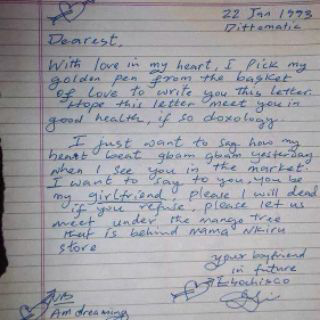 22 Jan 1993
Dittomatic
Dearest,
With love in my heart, I pick my
golden pen from the basket
of love to write you this letter.
Hope this letter meet you in
good health, if so doxology.
I just want to say how my
heart beat gbam gbam yesterday
when I see you in the market.
I want to say to you, you be
my girlfriend, please I will dead
if you refuse, please let us
meet under the mango tree
that is behind mama Nkiru
store
your boyfriend
in future
Ebochisco
NB
Am dreaming